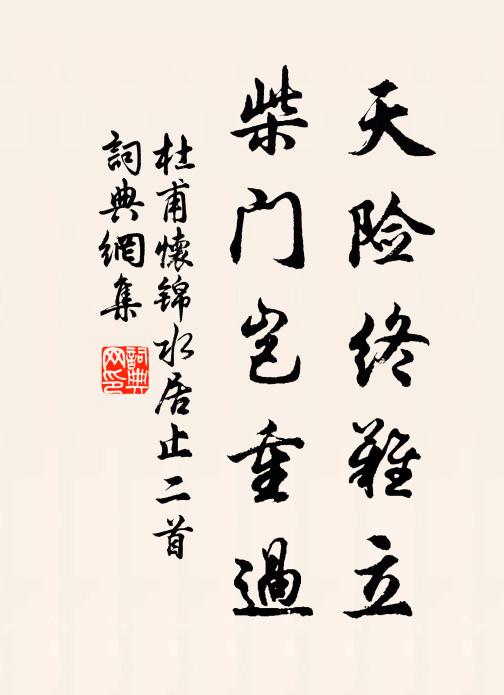 天险终難立
柴门岂重過
杜甫懷锦水居止二首
詞典網集
詞典網印